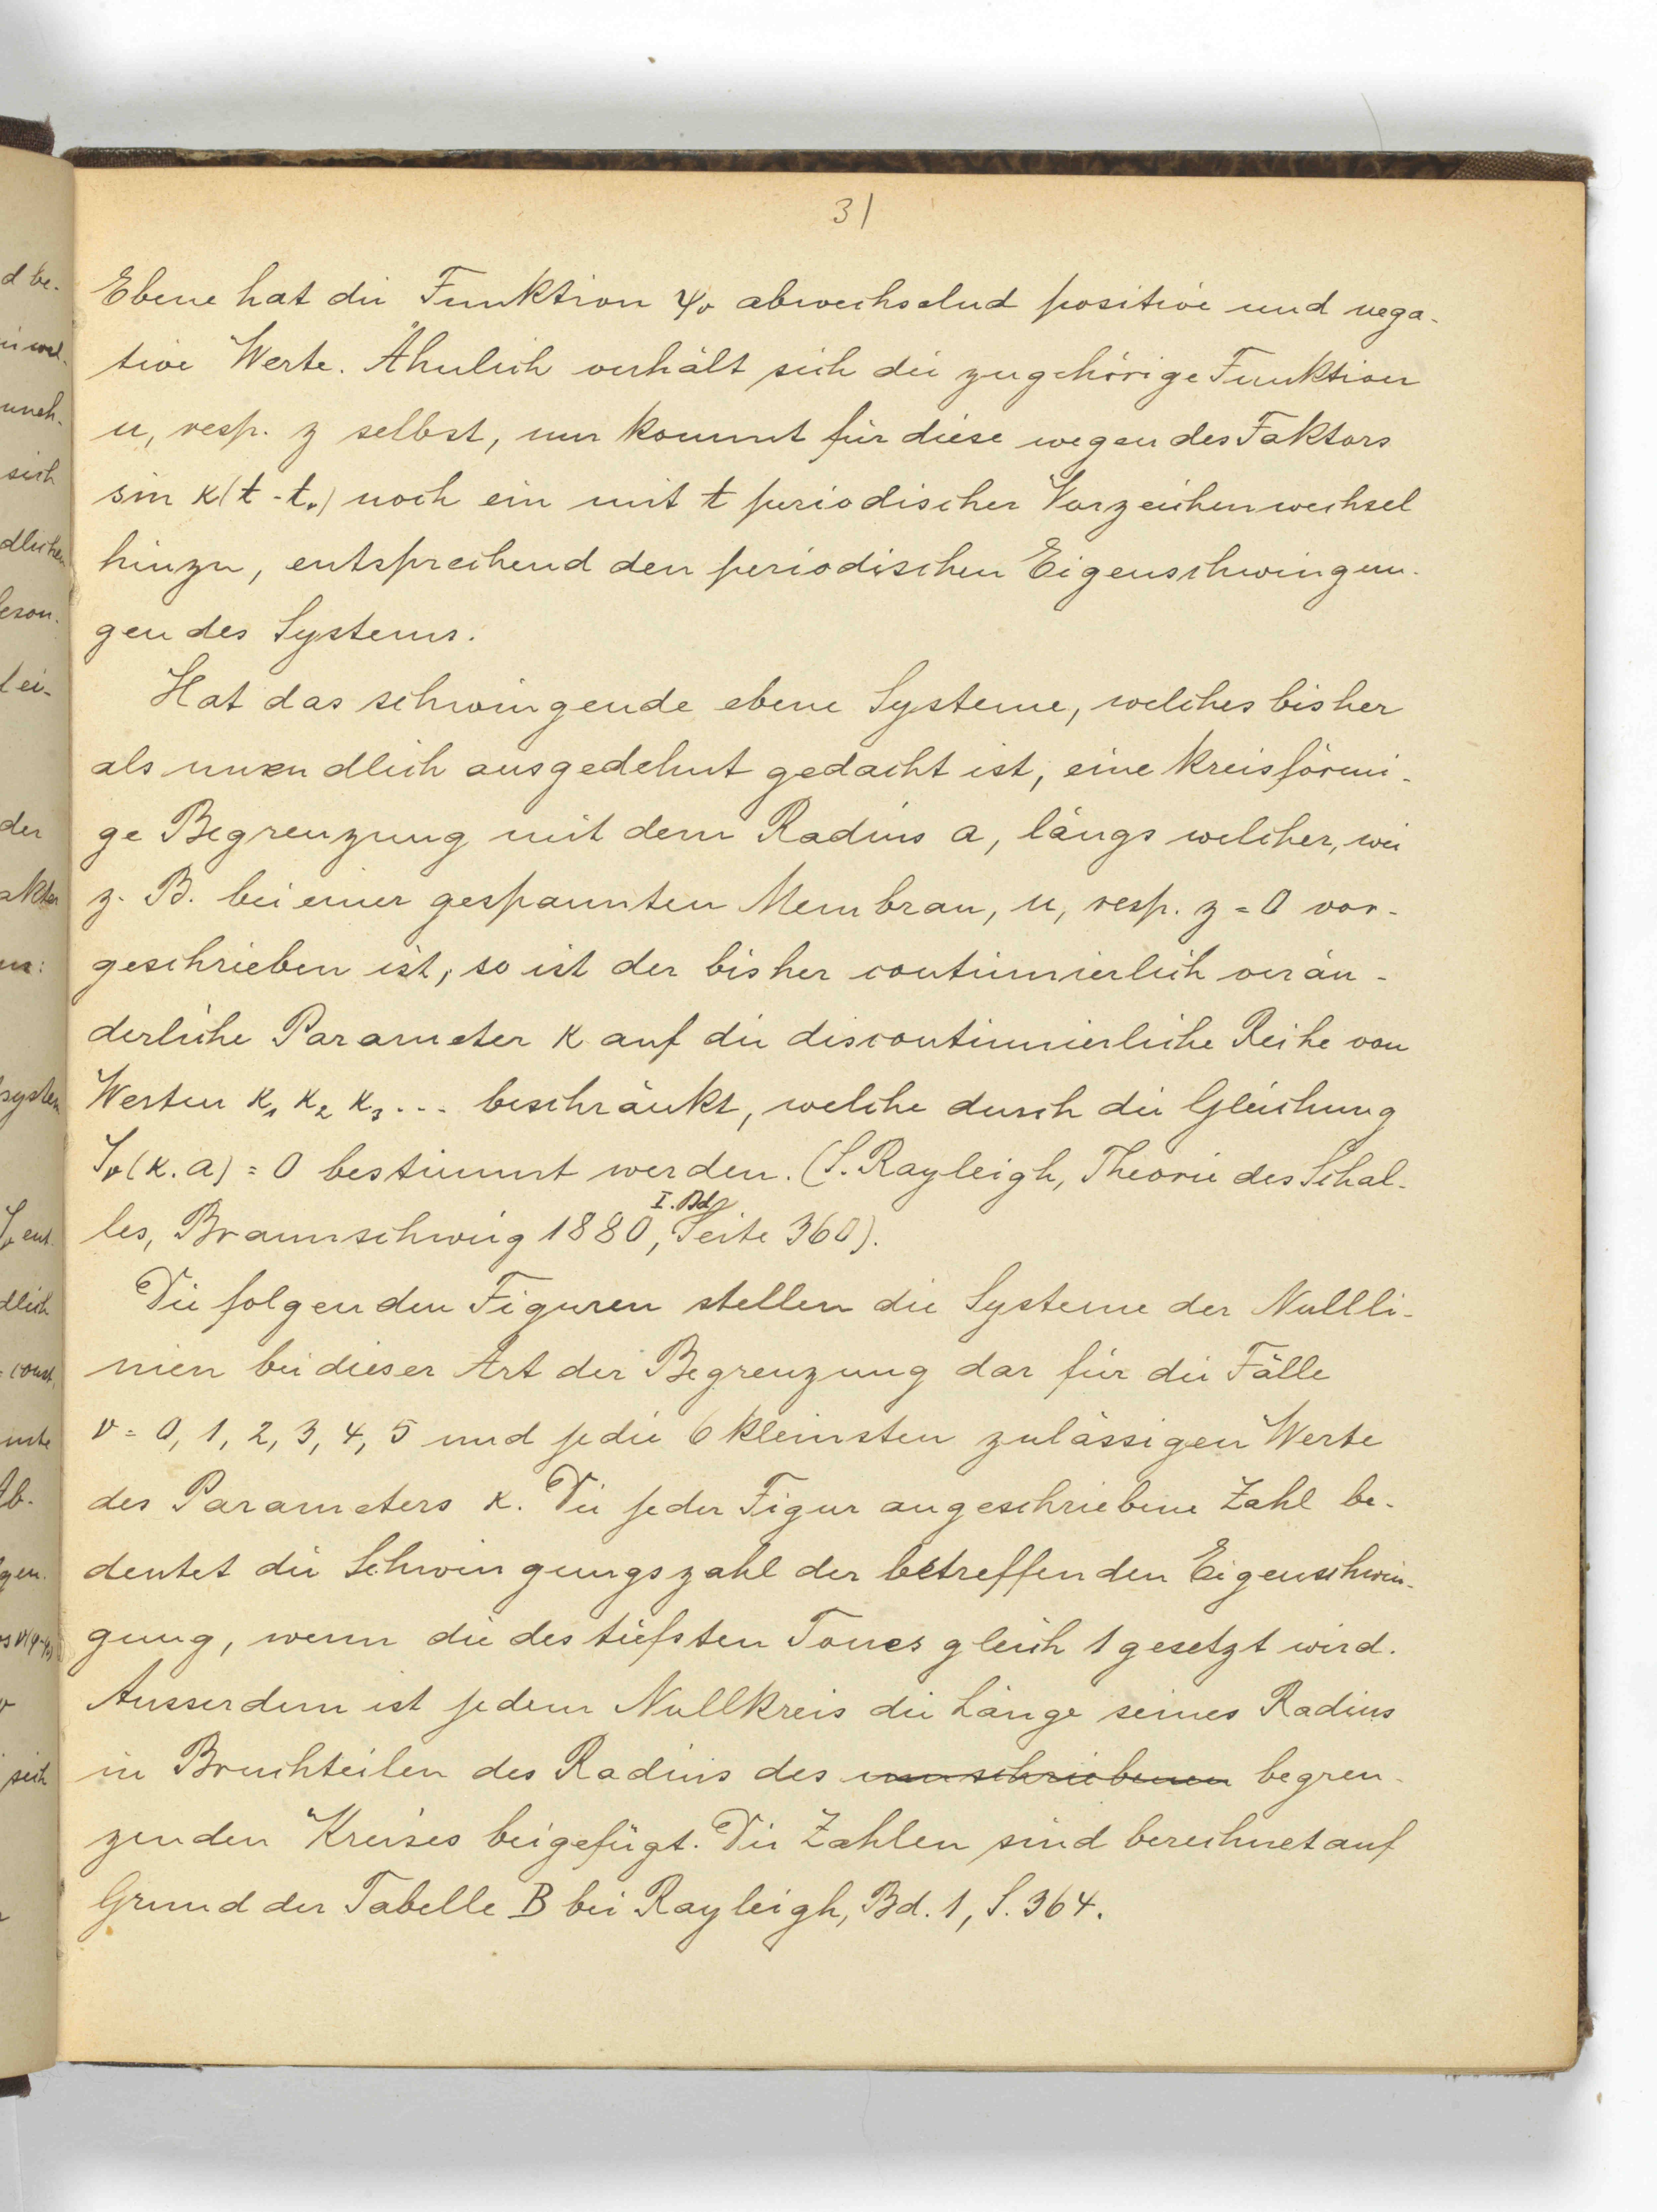 31
Ebene hat die Funktion ψν abwechselnd positive und nega-
tive Werte. Ähnlich verhält sich die zugehörige Funktion
u, resp. z selbst, nur kommt für diese wegen des Faktors
sin κ(t-t₀) noch ein mit t periodischer Vorzeichenwechsel
hinzu, entsprechend den periodischen Eigenschwingun-
gen des Systems.
Hat das schwingende ebene Systeme, welches bisher
als unendlich ausgedehnt gedacht ist, eine kreisförmi-
ge Begrenzung mit dem Radius a, längs welcher, wie
z. B. bei einer gespannten Membran, u, resp. z = 0 vor-
geschrieben ist, so ist der bisher continuierlich verän-
derliche Parameter κ auf die discontinuierliche Reihe von
Werten κ₁ κ₂ κ₃ ... beschränkt, welche durch die Gleichung
Jν(κ.a) = 0 bestimmt werden. (S. Rayleigh, Theorie des Schal-
les, Braunschweig 1880, I. Bd, Seite 360).
Die folgenden Figuren stellen die Systeme der Nullli-
nien bei dieser Art der Begrenzung dar für die Fälle
ν = 0, 1, 2, 3, 4, 5 und je die 6 kleinsten zulässigen Werte
des Parameters κ. Die jeder Figur angeschriebene Zahl be-
deutet die Schwingungszahl der betreffenden Eigenschwin-
gung, wenn die des tiefsten Tones gleich 1 gesetzt wird.
Ausserdem ist jedem Nullkreis die Länge seines Radius
in Bruchteilen des Radius des umschriebenen begren-
zenden Kreises beigefügt. Die Zahlen sind berechnet auf
Grund der Tabelle B bei Rayleigh, Bd. 1, S. 364.